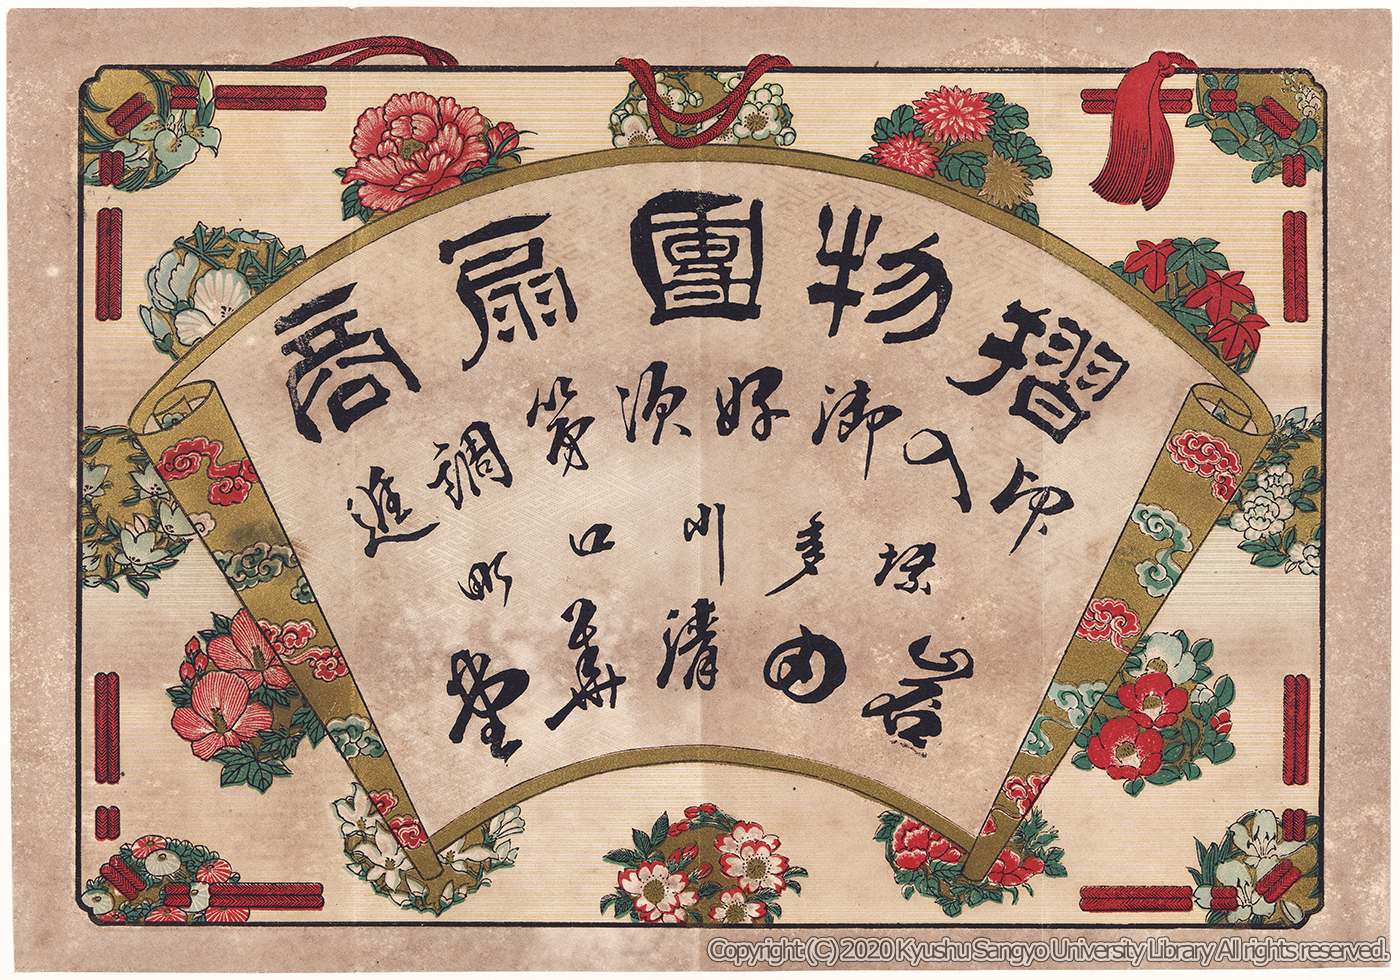 摺物團扇商
印入御好次第調進
博多川口町
岩田清華堂
Copyright (C) 2020 Kyushu Sangyo University Library All rights reserved.